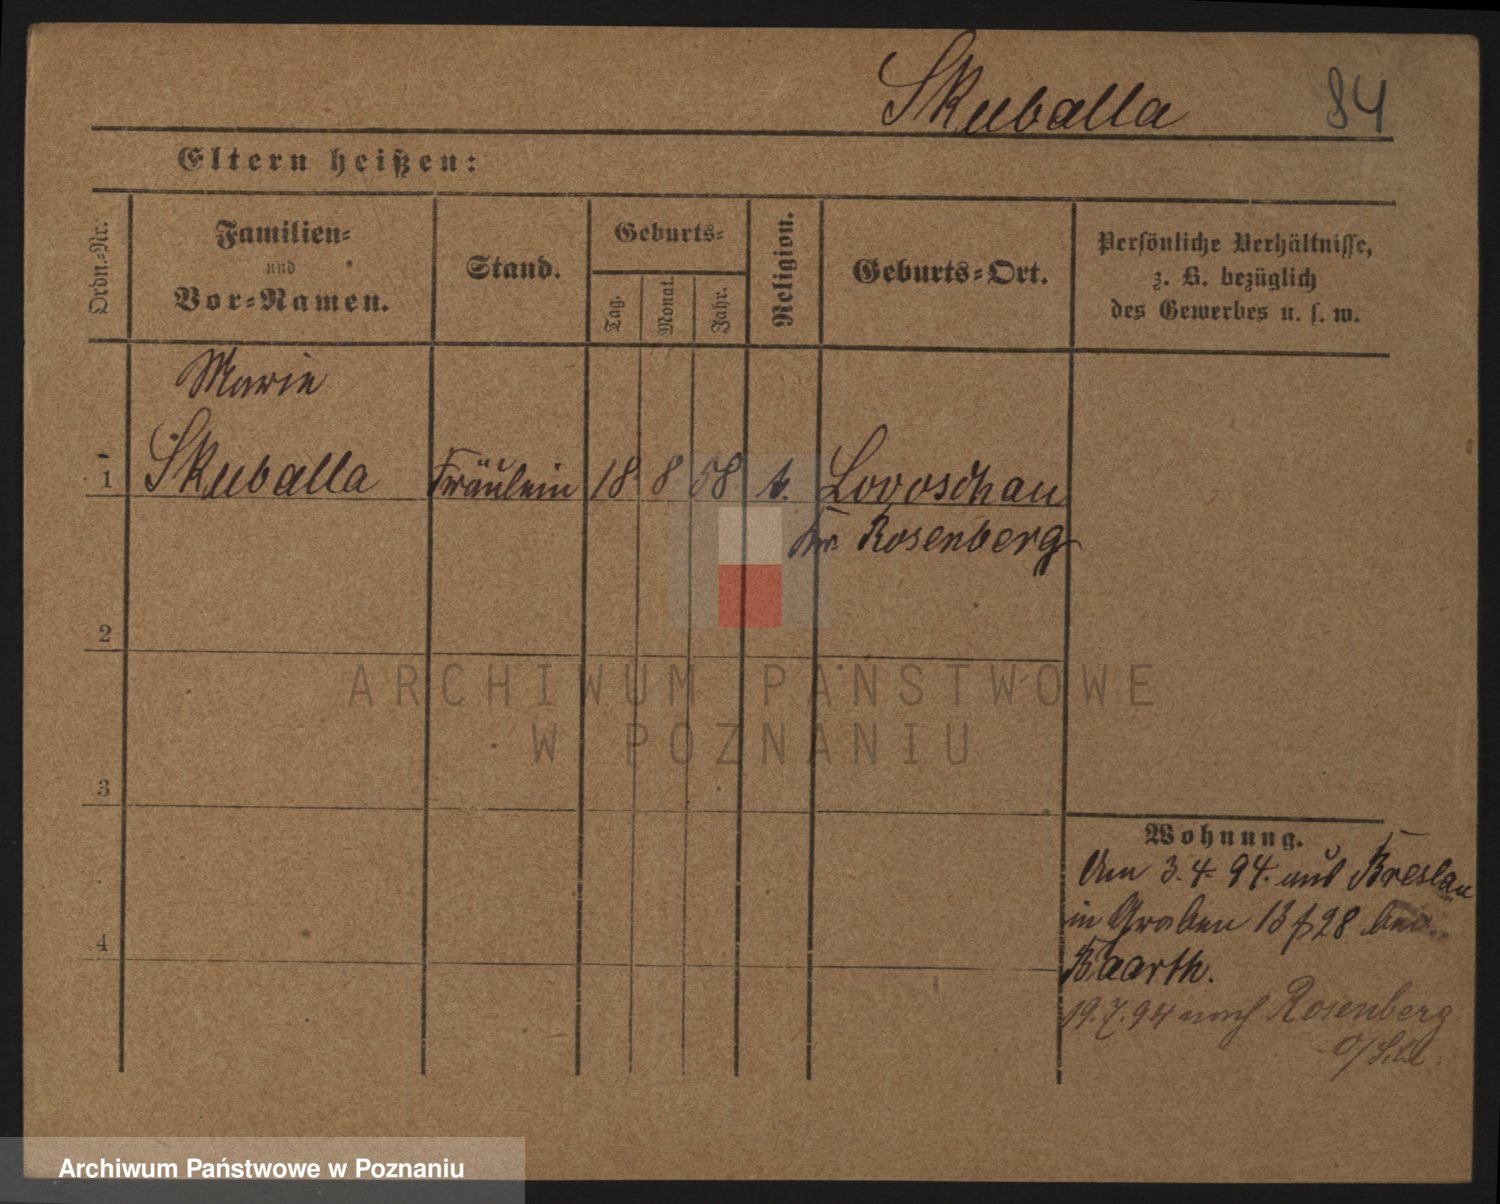 Skuballa 84
Eltern heißen:
Ordn.-Nr.
Familien-
und
Vor-Namen.
Stand.
Geburts-
Tag.
Monat.
Jahr.
Religion.
Geburts-Ort.
Persönliche Verhältnisse,
z. B. bezüglich
des Gewerbes u. s. w.
Marie
1 Skuballa Fräulein 18 8 58 k. Lovoschau
Kr. Rosenberg
2
3
4
Wohnung.
Am 3.4.94. aus Breslau
in Graben 13 28 bei
Baarth.
19.7.94 nach Rosenberg
O/Schl.
ARCHIWUM PAŃSTWOWE
W POZNANIU
Archiwum Państwowe w Poznaniu